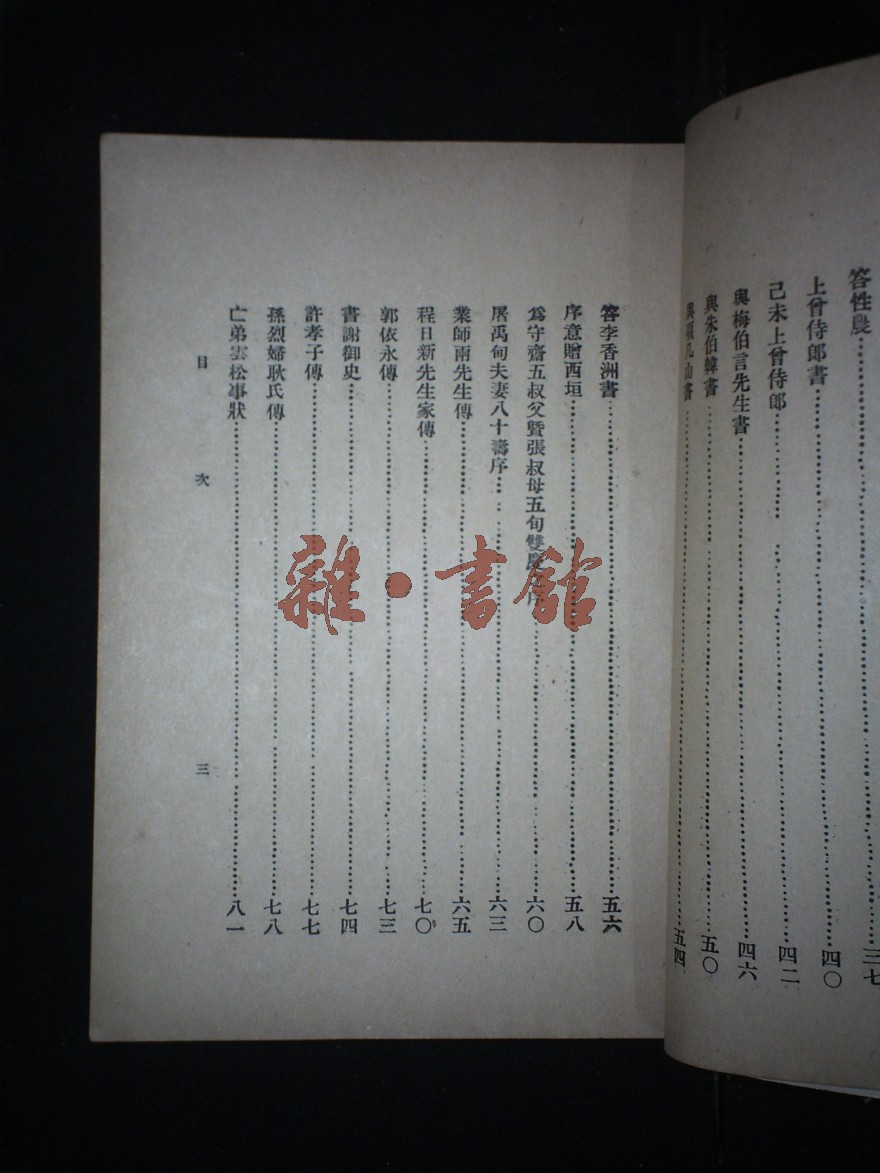 答性農……三七
上曾侍郎書……四〇
己未上曾侍郎……四二
與梅伯言先生書……四六
與朱伯韓書……五〇
與項几山書……五四
答李香洲書……五六
序意贈西垣……五八
爲守齋五叔父暨張叔母五旬雙慶之序……六〇
屠禹甸夫妻八十壽序……六三
業師雨先生傳……六五
程日新先生家傳……七〇
郭依永傳……七三
書謝御史……七四
許孝子傳……七七
孫烈婦耿氏傳……七八
亡弟雲松事狀……八一
目 次
三
雜·書館